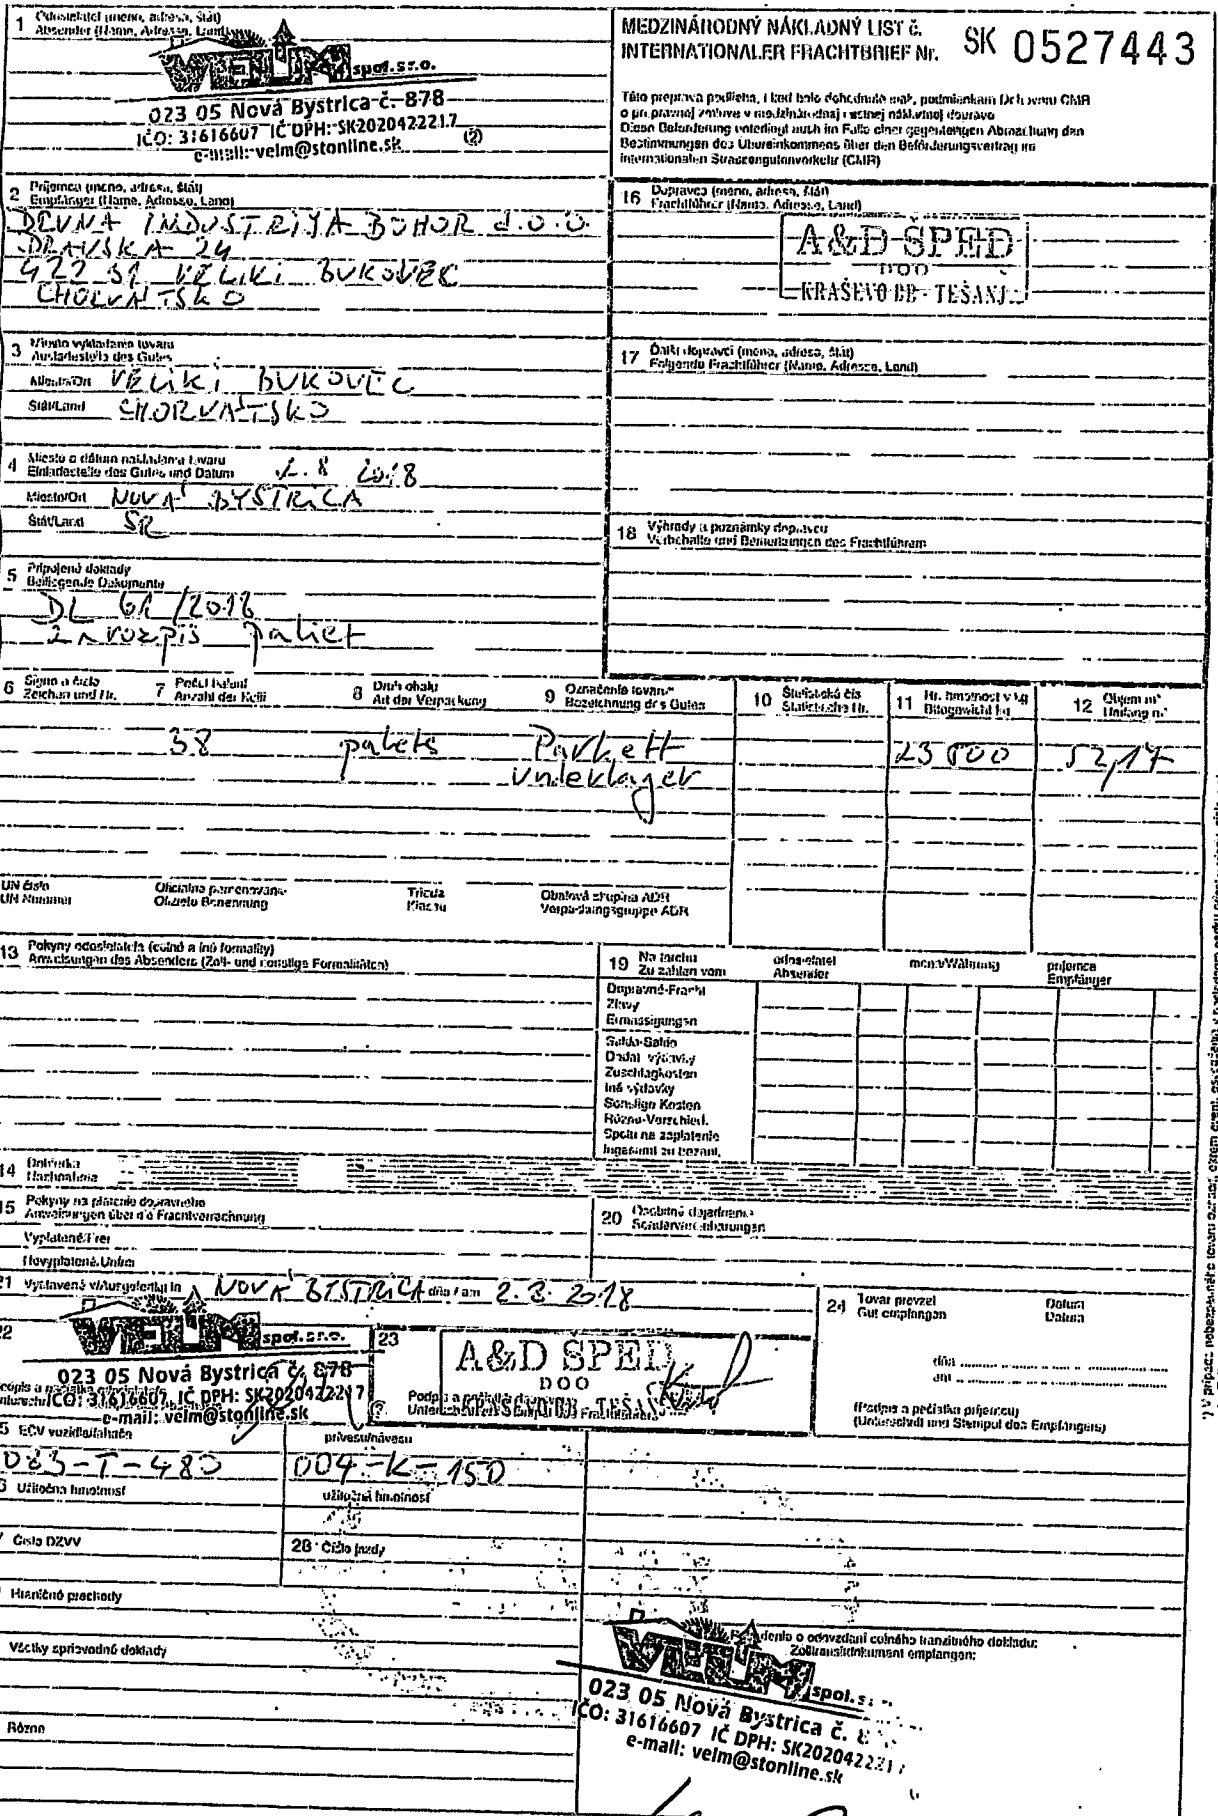 1 Odosielateľ (meno, adresa, štát)
Absender (Name, Adresse, Land)
VELM spol. s r.o.
023 05 Nová Bystrica č. 878
IČO: 31616607 IČ DPH: SK2020422217
e-mail: velm@stonline.sk (2)
MEDZINÁRODNÝ NÁKLADNÝ LIST č.
INTERNATIONALER FRACHTBRIEF Nr. SK 0527443
Táto preprava podlieha, i keď bolo dohodnuté inak, podmienkam Dohovoru CMR
o prepravnej zmluve v medzinárodnej cestnej nákladnej doprave
Diese Beförderung unterliegt auch im Falle einer gegenteiligen Abmachung den
Bestimmungen des Übereinkommens über den Beförderungsvertrag im
internationalen Strassengüterverkehr (CMR)
2 Príjemca (meno, adresa, štát)
Empfänger (Name, Adresse, Land)
DRVNA INDUSTRIJA BOHOR d.o.o.
DRAVSKA 24
422 31 VELIKI BUKOVEC
CHORVATSKO
16 Dopravca (meno, adresa, štát)
Frachtführer (Name, Adresse, Land)
A&D ŠPED
DOO
KRAŠEVO BB - TEŠANJ
3 Miesto vykládania tovaru
Ausladestelle des Gutes
Miesto/Ort VELIKI BUKOVEC
Štát/Land CHORVATSKO
17 Ďalší dopravci (meno, adresa, štát)
Folgende Frachtführer (Name, Adresse, Land)
4 Miesto a dátum nakladania tovaru
Einladestelle des Gutes und Datum 2. 8 2018
Miesto/Ort NOVÁ BYSTRICA
Štát/Land SR
18 Výhrady a poznámky dopravcu
Vorbehalte und Bemerkungen des Frachtführers
5 Pripojené doklady
Beiliegende Dokumente
DL 61/2018
rozpis paliet
6 Signo a číslo
Zeichen und Nr.
7 Počet balení
Anzahl der Kolli
8 Druh obalu
Art der Verpackung
9 Označenie tovaru*
Bezeichnung des Gutes
10 Štatistické čís
Statistische Nr.
11 Hr. hmotnosť v kg
Bruttogewicht kg
12 Objem m³
Umfang m³
38 pakets Parkett 23 500 52,17
unterlager
UN číslo
UN Nummer
Oficiálne pomenovanie
Offizielle Benennung
Trieda
Klasse
Obalová skupina ADR
Verpackungsgruppe ADR
13 Pokyny odosielateľa (colné a iné formality)
Anweisungen des Absenders (Zoll- und sonstige Formalitäten)
19 Na ťarchu
Zu zahlen vom
odosielateľ
Absender
mena/Währung
príjemca
Empfänger
Dopravné-Fracht
Zľavy
Ermässigungen
Saldo-Saldo
Dodat. výdavky
Zuschlagkosten
Iné výdavky
Sonstige Kosten
Rôzne-Verschied.
Spolu na zaplatenie
14 Dobierka
Nachnahme
15 Pokyny na platenie dopravného
Anweisungen über die Frachtverrechnung
Vyplatené/Frei
Nevyplatené/Unfrei
20 Osobitné dojednania
Sondervereinbarungen
21 Vystavené v/Ausgefertigt in NOVÁ BYSTRICA dňa / am 2.8. 2018
22
VELM spol. s r.o.
023 05 Nová Bystrica č. 878
IČO: 31616607 IČ DPH: SK2020422217
e-mail: velm@stonline.sk
23
A&D ŠPED
DOO
KRAŠEVO BB - TEŠANJ
24 Tovar prevzal
Gut empfangen
Dátum
Datum
dňa
am
(Podpis a pečiatka príjemcu)
(Unterschrift und Stempel des Empfängers)
25 EČV vozidla/ťahača
prívesu/návesu
004-K-150
Užitočná hmotnosť
užitočná hmotnosť
Číslo DZVV
28 Číslo jazdy
Hraničné prechody
Všetky sprievodné doklady
Rôzne
o odovzdaní colného tranzitného dokladu:
Zolltransitdokument empfangen:
VELM spol. s
023 05 Nová Bystrica č.
IČO: 31616607 IČ DPH: SK202042221
e-mail: velm@stonline.sk